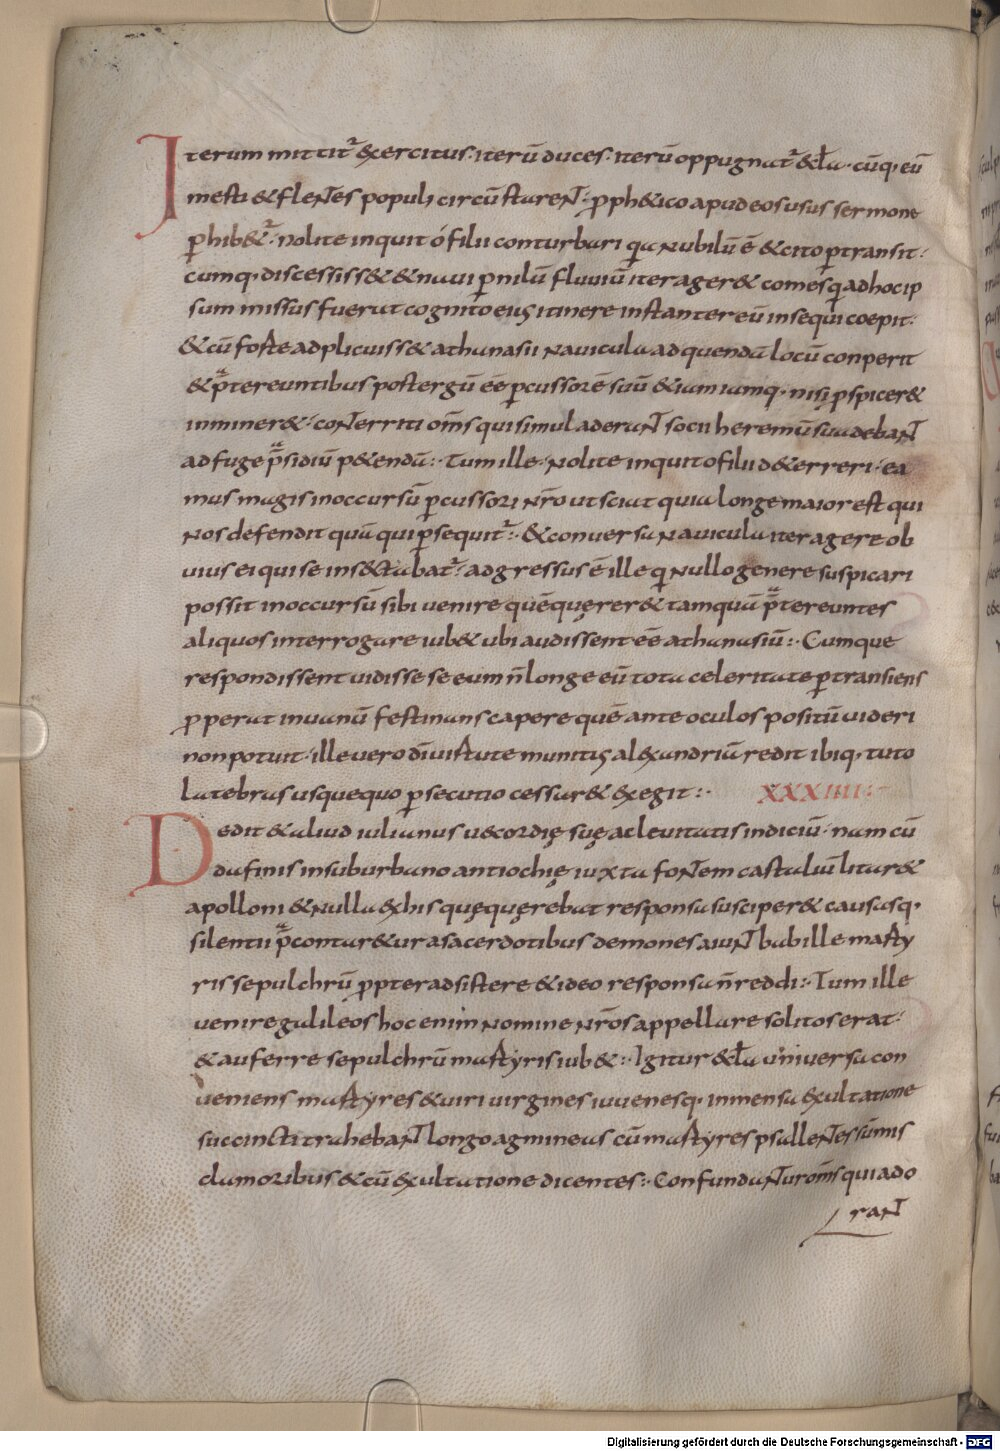 Iterum mittit᷑ &xercitus · iterū duces · iterū oppugnat᷑ &cl̄a · cūq; eū
mesti & flentes populi circūstarent · ꝓph&ico apud eos usus sermone
ꝑhib&᷑ · nolite inquit ó filii conturbari quia nubilū ē & cito ꝑtransit ·
cumq; discessiss& & naui ꝑ nilū fluuiū iter ager& comes qui ad hoc ip
sum missus fuerat cognito eius itinere instanter eū insequi coepit ·
& cū foste adplicuiss& athanasii nauicula ad quendā locū conperit
& p̄tereuntibus postergū eē ꝑcussorē suū & iam iamq; nisi ꝓspicer&
inminer& · conterriti om̄s qui simul aderant socii heremū suadebant
ad fuge p̄sidiū p&endū :· Tum ille · Nolite inquit o filii d&erreri · ea
mus magis inoccursū ꝑcussori nr̄o ut sciat quia longe maior est qui
nos defendit quā qui ꝑsequit᷑ :· & conuersa nauicula iter agere ob
uius ei qui se insectabat᷑ · adgressus ē ille qi nullo genere suspicari
possit inoccursū sibi uenire quē quęrer& tamquā p̄tereuntes
aliquos interrogare iub& ubi audissent eē athanasiū :· Cumque
respondissent uidisse se eum n̄ longe eū tota celeritate ꝑtransiens
ꝓperat inuanū festinans capere quē ante oculos positū uideri
non potuit · ille uero dī uirtute munitus al&xandriā redit ibiq; tuto
latebras usquequo ꝑsecutio cessar& &xegit :· XXXIIII :·
Dedit & aliud iulianus uecordię suę ac leuitatis indiciū · nam cū
dafinis insuburbano antiochię iuxta fontem castaliū litar&
apolloni & nulla &xhis quę quęrebat responsa susciper& causasq;
silentii p̄contar&ur a sacerdotibus demones aiunt babille marty
ris sepulchrū ꝓpter adsistere & ideo responsa n̄ reddi :· Tum ille
uenire galileos hoc enim nomine nr̄os appellare solitos erat ·
& auferre sepulchrū martyris iub& :· Igitur &cl̄a uniuersa con
ueniens martyres & uiri uirgines iuuenesq; inmensa &xultatione
succincti trahebant longo agmine as cū martyres psallentes sūmis
clamoribus & cū &xultatione dicentes :· Confundantur om̄s qui ado
rant
Digitalisierung gefördert durch die Deutsche Forschungsgemeinschaft - DFG